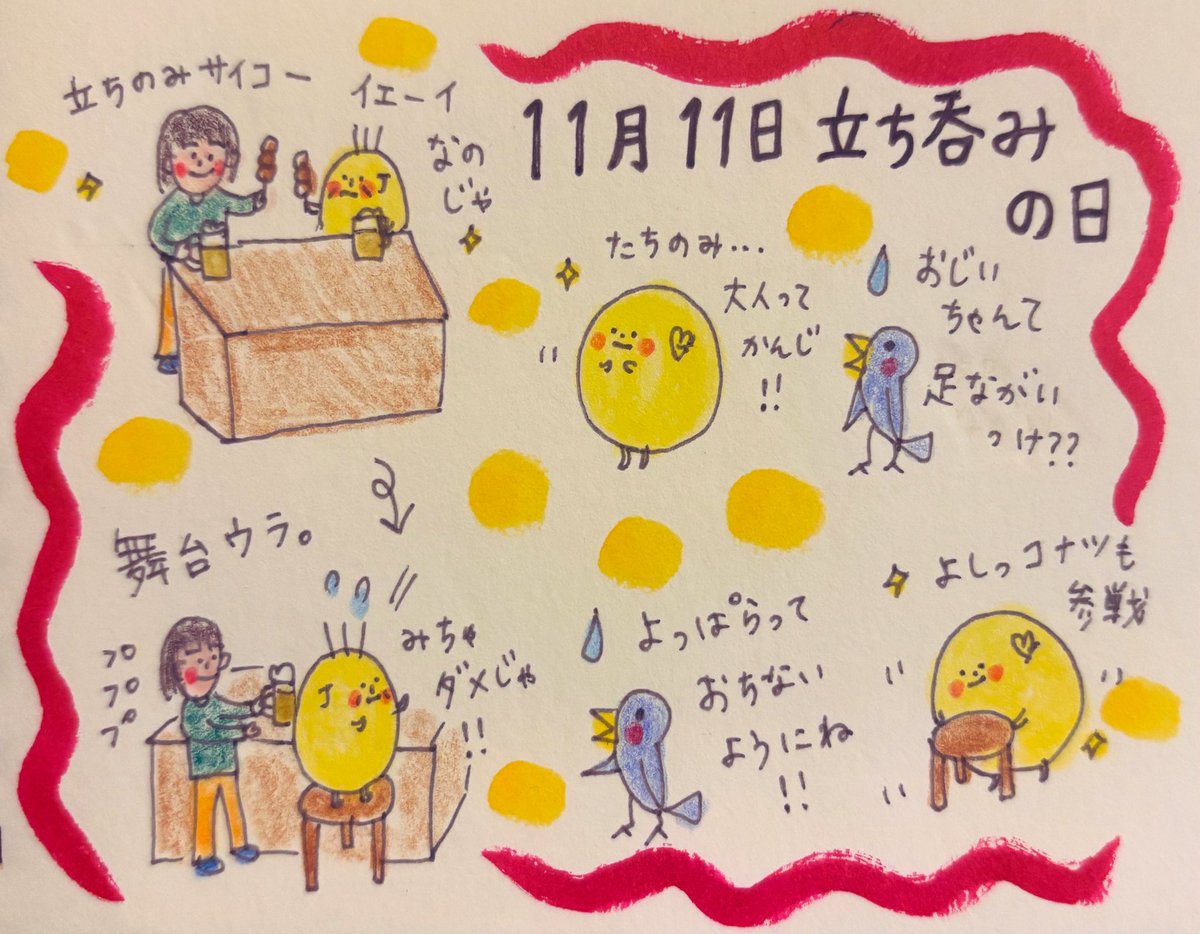 11月11日 立ち呑み
の日
立ちのみサイコー
イエーイ
なの
じゃ
たちのみ…
大人って
かんじ
!!
おじい
ちゃんて
足ながい
っけ??
舞台ウラ。
プ
プ
プ
みちゃ
ダメじゃ
!!
よっぱらって
おちない
ようにね
!!
よしっコナツも
参戦